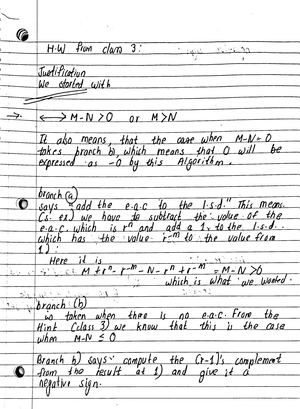 H.W from class 3:
Justification
We started with
→ ⟷ M-N > 0 or M > N
It also means, that the case when M-N = 0
takes branch b), which means that 0 will be
expressed as -0 by this Algorithm.
branch (a)
says "add the e.a.c to the l.s.d." This means
(s. ex.) we have to subtract the value of the
e.a.c. which is rⁿ and add a 1 to the l.s.d.
which has the value r⁻ᵐ to the value from
1) :
Here it is
M + rⁿ - r⁻ᵐ - N - rⁿ + r⁻ᵐ = M-N > 0
which is what we wanted.
branch (b)
is taken when there is no e.a.c. From the
Hint (class 3) we know that this is the case
when M-N ≤ 0
Branch b) says: compute the (r-1)'s complement
from the result at 1) and give it a
negative sign.